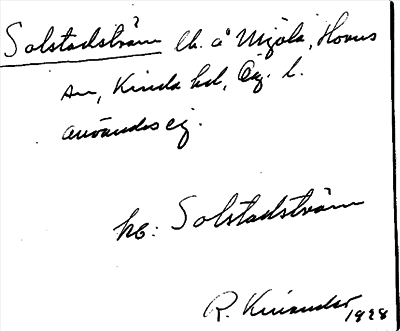 Solstadström lh. å Mjöla, Horns
sn, Kinda hd, Ög. l.
användes ej.
kc: Solstadström
R. Kinander
1928